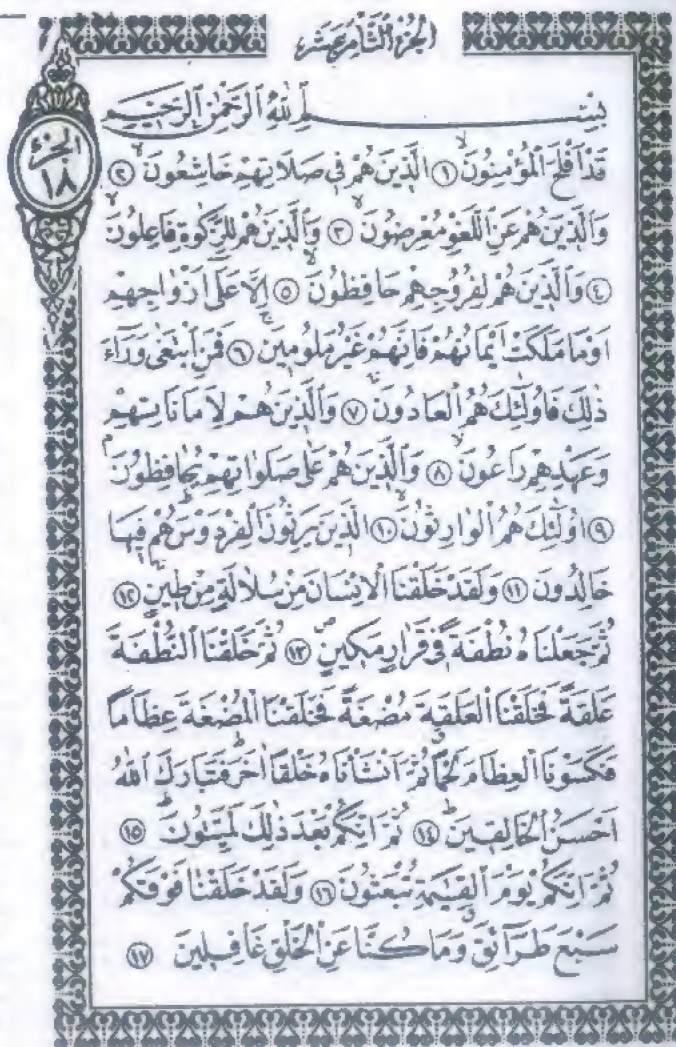 الجزء الثامن عشر
الجزء
١٨
بِسْمِ اللّٰهِ الرَّحْمٰنِ الرَّحِيمِ
قَدْ اَفْلَحَ الْمُؤْمِنُونَ ۝١ اَلَّذِينَ هُمْ فِي صَلَاتِهِمْ خَاشِعُونَ ۝٢
وَالَّذِينَ هُمْ عَنِ اللَّغْوِ مُعْرِضُونَ ۝٣ وَالَّذِينَ هُمْ لِلزَّكٰوةِ فَاعِلُونَ
۝٤ وَالَّذِينَ هُمْ لِفُرُوجِهِمْ حَافِظُونَ ۝٥ اِلَّا عَلٰى اَزْوَاجِهِمْ
اَوْ مَا مَلَكَتْ اَيْمَانُهُمْ فَاِنَّهُمْ غَيْرُ مَلُومِينَ ۝٦ فَمَنِ ابْتَغٰى وَرَآءَ
ذٰلِكَ فَاُولٰٓئِكَ هُمُ الْعَادُونَ ۝٧ وَالَّذِينَ هُمْ لِاَمَانَاتِهِمْ
وَعَهْدِهِمْ رَاعُونَ ۝٨ وَالَّذِينَ هُمْ عَلٰى صَلَوَاتِهِمْ يُحَافِظُونَ
۝٩ اُولٰٓئِكَ هُمُ الْوَارِثُونَ ۝١٠ اَلَّذِينَ يَرِثُونَ الْفِرْدَوْسَ هُمْ فِيهَا
خَالِدُونَ ۝١١ وَلَقَدْ خَلَقْنَا الْاِنْسَانَ مِنْ سُلَالَةٍ مِنْ طِينٍ ۝١٢
ثُمَّ جَعَلْنَاهُ نُطْفَةً فِي قَرَارٍ مَكِينٍ ۝١٣ ثُمَّ خَلَقْنَا النُّطْفَةَ
عَلَقَةً فَخَلَقْنَا الْعَلَقَةَ مُضْغَةً فَخَلَقْنَا الْمُضْغَةَ عِظَامًا
فَكَسَوْنَا الْعِظَامَ لَحْمًا ثُمَّ اَنْشَاْنَاهُ خَلْقًا اٰخَرَ فَتَبَارَكَ اللّٰهُ
اَحْسَنُ الْخَالِقِينَ ۝١٤ ثُمَّ اِنَّكُمْ بَعْدَ ذٰلِكَ لَمَيِّتُونَ ۝١٥
ثُمَّ اِنَّكُمْ يَوْمَ الْقِيٰمَةِ تُبْعَثُونَ ۝١٦ وَلَقَدْ خَلَقْنَا فَوْقَكُمْ
سَبْعَ طَرَآئِقَ وَمَا كُنَّا عَنِ الْخَلْقِ غَافِلِينَ ۝١٧